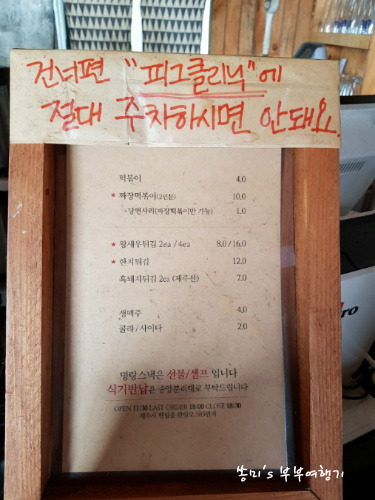 건너편 "피그클리닉"에
절대 주차하시면 안돼요.
떡볶이 4.0
* 짜장떡볶이(2인분) 10.0
-당면사리(짜장떡볶이만 가능) 1.0
* 왕새우튀김 2ea / 4ea 8.0 / 16.0
* 한치튀김 12.0
흑돼지튀김 2ea (제주산) 7.0
생맥주 4.0
콜라 / 사이다 2.0
명랑스낵은 선불/셀프 입니다
식기반납은 중앙분리대로 부탁드립니다
OPEN 11:30 LAST ORDER 18:00 CLOSE 18:30
제주시 한림읍 한림로
쏭미's 부부여행기